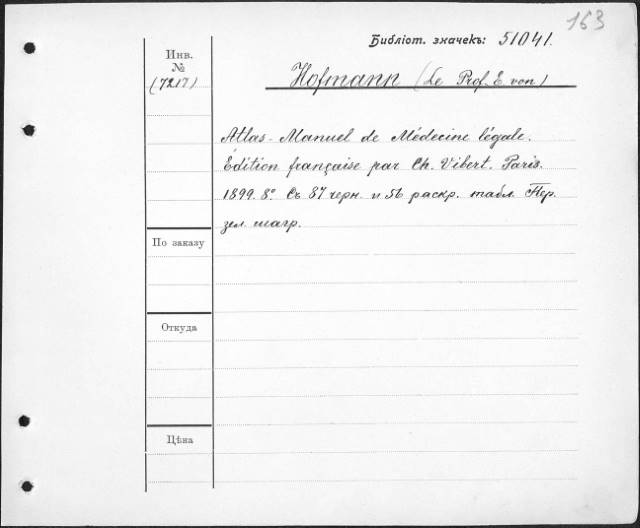 163
Библіот. значекъ: 51041.
Инв.
№
(7217)
Hofmann (Le Prof. E. von)
Atlas-Manuel de Médecine légale.
Édition française par Ch. Vibert. Paris.
1899. 8º. Съ 87 черн. и 56 раскр. табл. Пер.
зел. шагр.
По заказу
Откуда
Цѣна